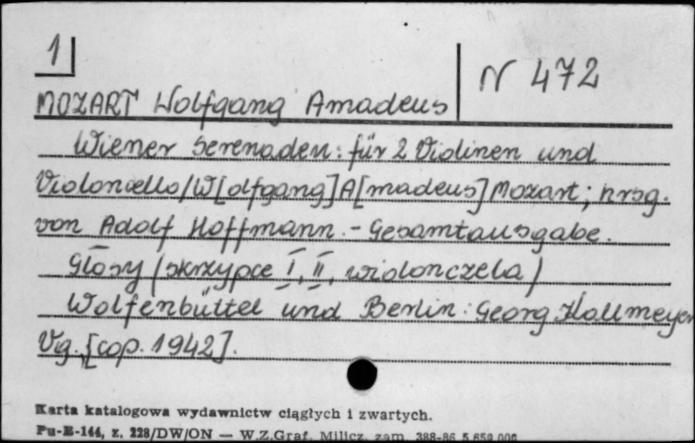 1
N 472
MOZART Wolfgang Amadeus
Wiener Serenaden: für 2 Violinen und
Violoncello/W[olfgang]A[madeus] Mozart; hrsg.
von Adolf Hoffmann. - Gesamtausgabe.
Głosy (skrzypce I, II, wiolonczela)
Wolfenbüttel und Berlin: Georg Kallmeyer
Vg. [cop. 1942].
Karta katalogowa wydawnictw ciągłych i zwartych.
Pu-K-144, z. 228/DW/ON — W.Z.Graf. Milicz, zam. 388-86 5.650.000